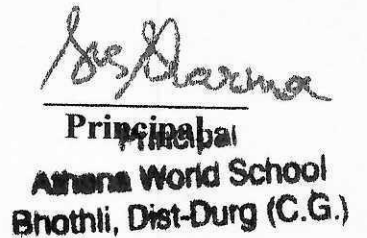 Principal
Principal
Athena World School
Bhothli, Dist-Durg (C.G.)